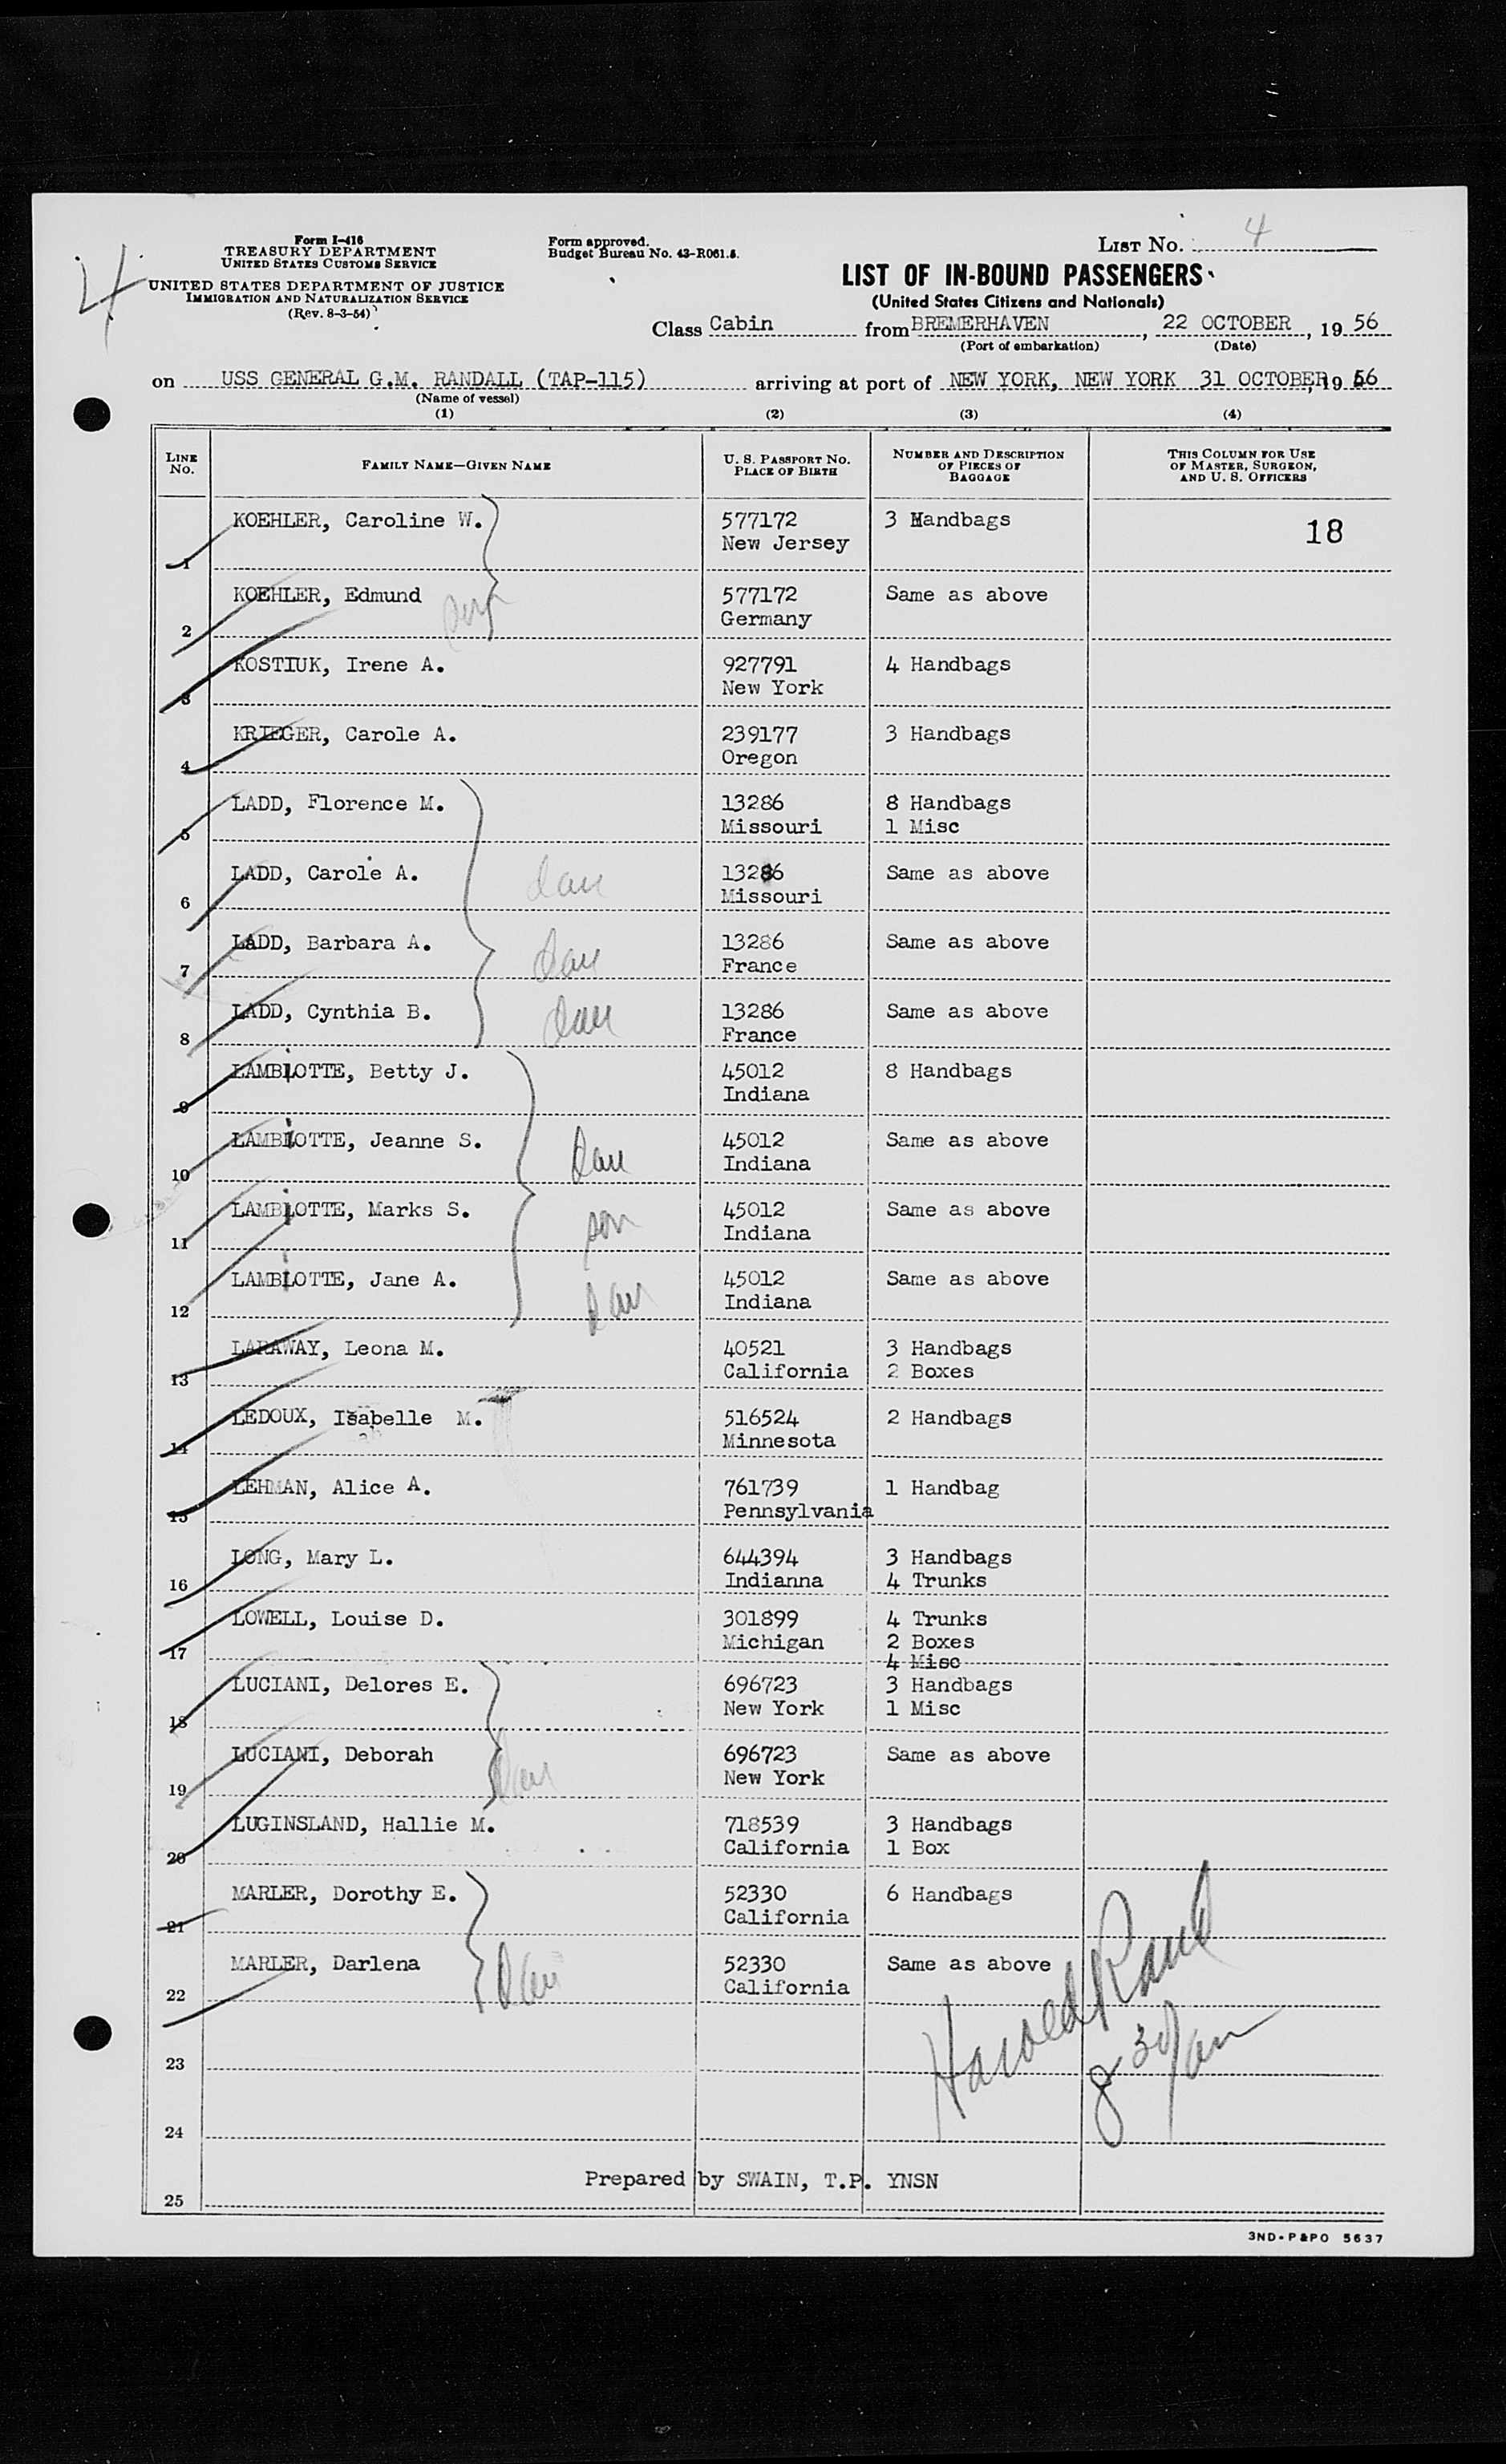 4
Form I-416
TREASURY DEPARTMENT
UNITED STATES CUSTOMS SERVICE
UNITED STATES DEPARTMENT OF JUSTICE
IMMIGRATION AND NATURALIZATION SERVICE
(Rev. 8-3-54)
Form approved.
Budget Bureau No. 43-R061.5.
LIST No. 4
LIST OF IN-BOUND PASSENGERS
(United States Citizens and Nationals)
Class Cabin from BREMERHAVEN, 22 OCTOBER, 19 56
(Port of embarkation) (Date)
on USS GENERAL G.M. RANDALL (TAP-115) arriving at port of NEW YORK, NEW YORK 31 OCTOBER, 19 56
(Name of vessel)
(1) (2) (3) (4)
LINE No. FAMILY NAME—GIVEN NAME U. S. PASSPORT No. PLACE OF BIRTH NUMBER AND DESCRIPTION OF PIECES OF BAGGAGE THIS COLUMN FOR USE OF MASTER, SURGEON, AND U. S. OFFICERS
1 KOEHLER, Caroline W. 577172 3 Handbags 18
New Jersey
2 KOEHLER, Edmund 577172 Same as above
Germany
3 KOSTIUK, Irene A. 927791 4 Handbags
New York
4 KRIEGER, Carole A. 239177 3 Handbags
Oregon
5 LADD, Florence M. 13286 8 Handbags
Missouri 1 Misc
6 LADD, Carole A. dau 13286 Same as above
Missouri
7 LADD, Barbara A. dau 13286 Same as above
France
8 LADD, Cynthia B. dau 13286 Same as above
France
9 LAMBIOTTE, Betty J. 45012 8 Handbags
Indiana
10 LAMBIOTTE, Jeanne S. dau 45012 Same as above
Indiana
11 LAMBIOTTE, Marks S. son 45012 Same as above
Indiana
12 LAMBIOTTE, Jane A. dau 45012 Same as above
Indiana
13 LARAWAY, Leona M. 40521 3 Handbags
California 2 Boxes
14 LEDOUX, Isabelle M. 516524 2 Handbags
Minnesota
15 LEHMAN, Alice A. 761739 1 Handbag
Pennsylvania
16 LONG, Mary L. 644394 3 Handbags
Indianna 4 Trunks
17 LOWELL, Louise D. 301899 4 Trunks
Michigan 2 Boxes
4 Misc
18 LUCIANI, Delores E. 696723 3 Handbags
New York 1 Misc
19 LUCIANI, Deborah dau 696723 Same as above
New York
20 LUGINSLAND, Hallie M. 718539 3 Handbags
California 1 Box
21 MARLER, Dorothy E. 52330 6 Handbags
California
22 MARLER, Darlena dau 52330 Same as above
California
Harold Rand
8 30/am
23
24
Prepared by SWAIN, T.P. YNSN
25
3ND-P&PO 5637